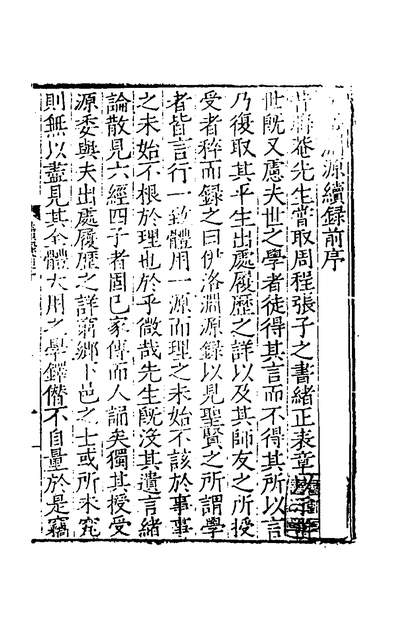 淵源續錄前序
昔晦菴先生嘗取周程張子之書緒正表章
世既又慮夫世之學者徒得其言而不得其所以言
乃復取其平生出處履歷之詳以及其師友之所授
受者稡而錄之曰伊洛淵源錄以見聖賢之所謂學
者皆言行一致體用一源而理之未始不該於事事
之未始不根於理也於乎微哉先生既没其遺言緒
論散見六經四子者固已家傳而人誦矣獨其授受
源委與夫出處履歷之詳窮鄉下邑之士或所未究
則無以盡見其全體大用之學鐸僭不自量於是竊